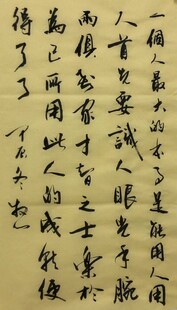 一個人最大的本事是能用人用
人首先要識人眼光手腕
兩俱到家才智之士樂於
為己所用此人的成就便
得了了
冬